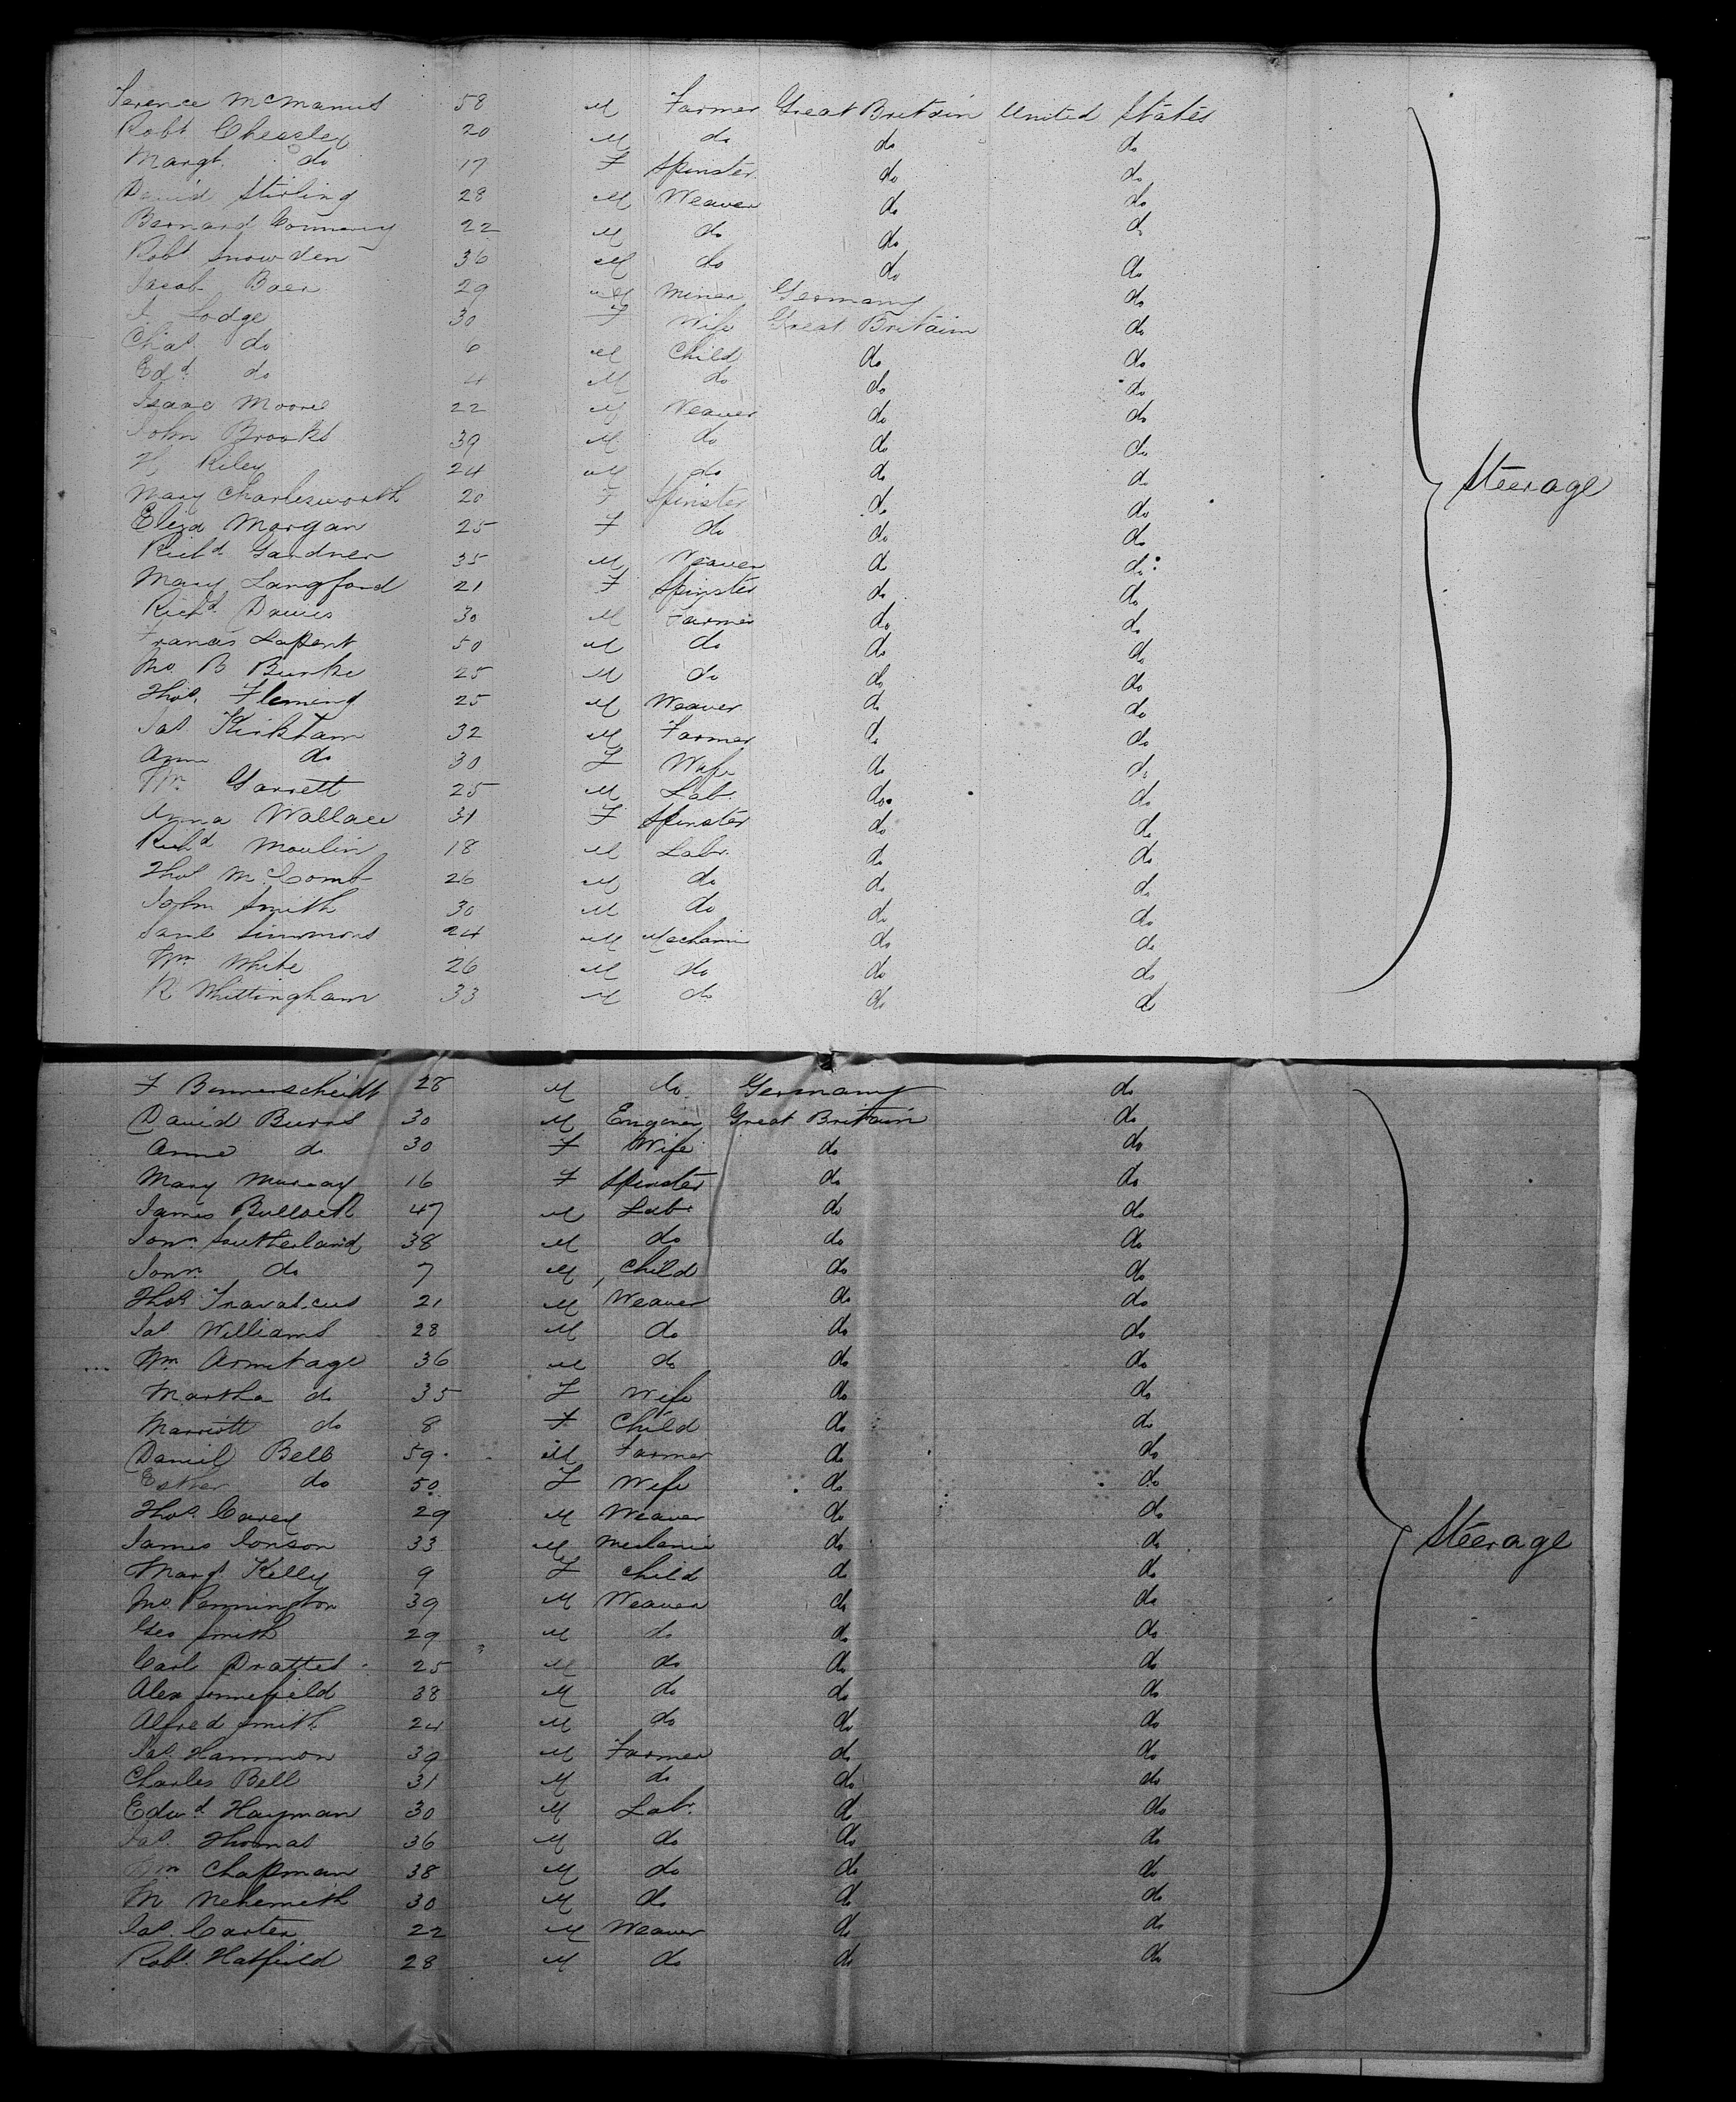 Terence McManus 58 M Farmer Great Britain United States
Robt Cheasley 20 M do do do
Margt. do 17 F Spinster do do
David Stirling 28 M Weaver do do
Bernard 22 M do do do
Robt Snowden 36 M do do do
Jacob Baer 29 M Miner Germany do
Lodge 30 F Wife Great Britain do
Chas do 6 M Child do do
Edd do 4 M do do do
Isaac Moore 22 M Weaver do do
John Brooks 39 M do do do
H Riley 24 M do do do
Mary Charlesworth 20 F Spinster do do
Eliza Morgan 25 F do do do
Richd Gardner 35 M Weaver do do
Mary Langford 21 F Spinster do do
Richd Davies 30 M Farmer do do
Francis 50 M do do do
Jno B Burke 25 M do do do
Thos. Fleming 25 M Weaver do do
Jas Kirkham 32 M Farmer do do
Ann do 30 F Wife do do
Wm Garrett 25 M Lab. do do
Anna Wallace 31 F Spinster do do
Richd Moulin 18 M Labr. do do
Thos McComb 26 M do do do
John Smith 30 M do do do
Saml Simmons 24 M Mechanic do do
Wm White 26 M do do do
R Whittingham 33 M do do do
Steerage
F 28 M do Germany do
David Burns 30 M Great Britain do
Anne do 30 F Wife do do
Mary Murray 16 F Spinster do do
James Bullock 47 M Labr do do
Jonn. Sutherland 38 M do do do
Jonn. do 7 M Child do do
Thos 21 M Weaver do do
Jas Williams 28 M do do do
Wm Armitage 36 M do do do
Martha do 35 F Wife do do
Marriott do 8 F Child do do
Daniel Bell 59 M Farmer do do
Esther do 50 F Wife do do
Thos Carey 29 M Weaver do do
James Conson 33 M Mechanic do do
Margt Kelly 9 F Child do do
Jno Pennington 39 M Weaver do do
Geo Smith 29 M do do do
Carl 25 M do do do
Alex 38 M do do do
Alfred Smith 24 M do do do
Jas. Hammon 39 M Farmer do do
Charles Bell 31 M do do do
Edwd Hayman 30 M Labr. do do
Jas. Thomas 36 M do do do
Wm Chapman 38 M do do do
M Nehemeth 30 M do do do
Jas. Carter 22 M Weaver do do
Robt. Hatfield 28 M do do do
Steerage